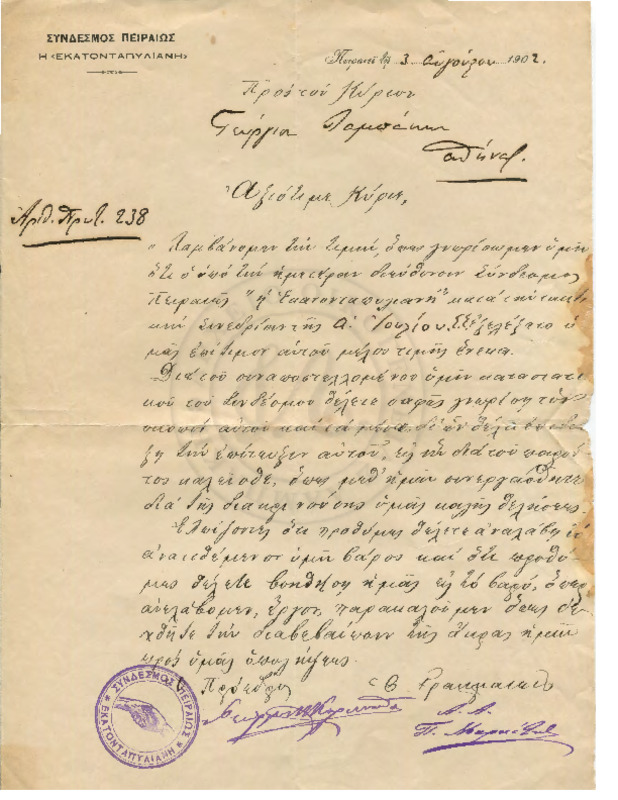 ΣΥΝΔΕΣΜΟΣ ΠΕΙΡΑΙΩΣ
Η «ΕΚΑΤΟΝΤΑΠΥΛΙΑΝΗ»
3 Αὐγούστου 1902.
Πρὸς τὸν Κύριον
Γεώργιον Λαμπάκην
Ἀθήνας.
Ἀξιότιμε Κύριε,
Ἀριθ. Πρωτ. 238
Λαμβάνομεν τὴν τιμὴν, ὅπως γνωρίσωμεν ὑμῖν
ὅτι ὁ ὑπὸ τὴν ἡμετέραν διεύθυνσιν Σύνδεσμος
Πειραιῶς "ἡ Ἑκατονταπυλιανὴ" κατὰ τὴν τακτι
κὴν Συνεδρίαν τῆς Ἰουλίου ἐξελέξατο ὑ
μᾶς ἐπίτιμον αὐτοῦ μέλος τιμῆς ἕνεκα.
Διὰ τοῦ συναποστελλομένου ὑμῖν καταστατι
κοῦ τοῦ Συνδέσμου θέλετε σαφῶς γνωρίσῃ τὸν
σκοπὸν αὐτοῦ καὶ τὰ μέσα, δι' ὧν θέλει
τὴν ἐπίτευξιν αὐτοῦ, εἰς ἣν διὰ τοῦ παρόν
τος καλεῖσθε, ὅπως μεθ' ἡμῶν συνεργασθῆτε
διὰ τῆς διακρινούσης ὑμᾶς καλῆς θελήσεως.
Ἐλπίζοντες ὅτι προθύμως θέλετε ἀναλάβῃ τὸ
ἀνατιθέμενον ὑμῖν βάρος καὶ ὅτι προθύ
μως θέλετε βοηθήσῃ ἡμᾶς εἰς τὸ βαρὺ, ὅπερ
ἀνελάβομεν, ἔργον, παρακαλοῦμεν ὅπως δε
χθῆτε τὴν διαβεβαίωσιν τῆς ἄκρας ἡμῶν
πρὸς ὑμᾶς ὑπολήψεως.
Πρόεδρος Ὁ Γραμματεὺς
ΣΥΝΔΕΣΜΟΣ ΠΕΙΡΑΙΩΣ
Η ΕΚΑΤΟΝΤΑΠΥΛΙΑΝΗ